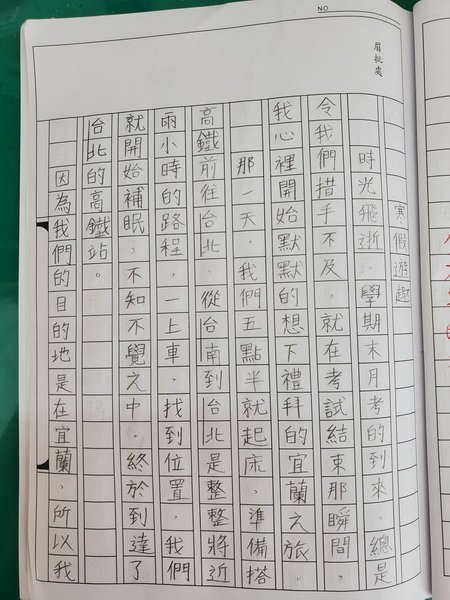 NO.
眉批處
寒假遊趣
時光飛逝，學期末月考的到來，總是
令我們措手不及，就在考試結束那瞬間，
我心裡開始默默的想下禮拜的宜蘭之旅。
那一天，我們五點半就起床，準備搭
高鐵前往台北，從台南到台北是整整將近
兩小時的路程，一上車，找到位置，我們
就開始補眠，不知不覺之中，終於到達了
台北的高鐵站。
因為我們的目的地是在宜蘭，所以我